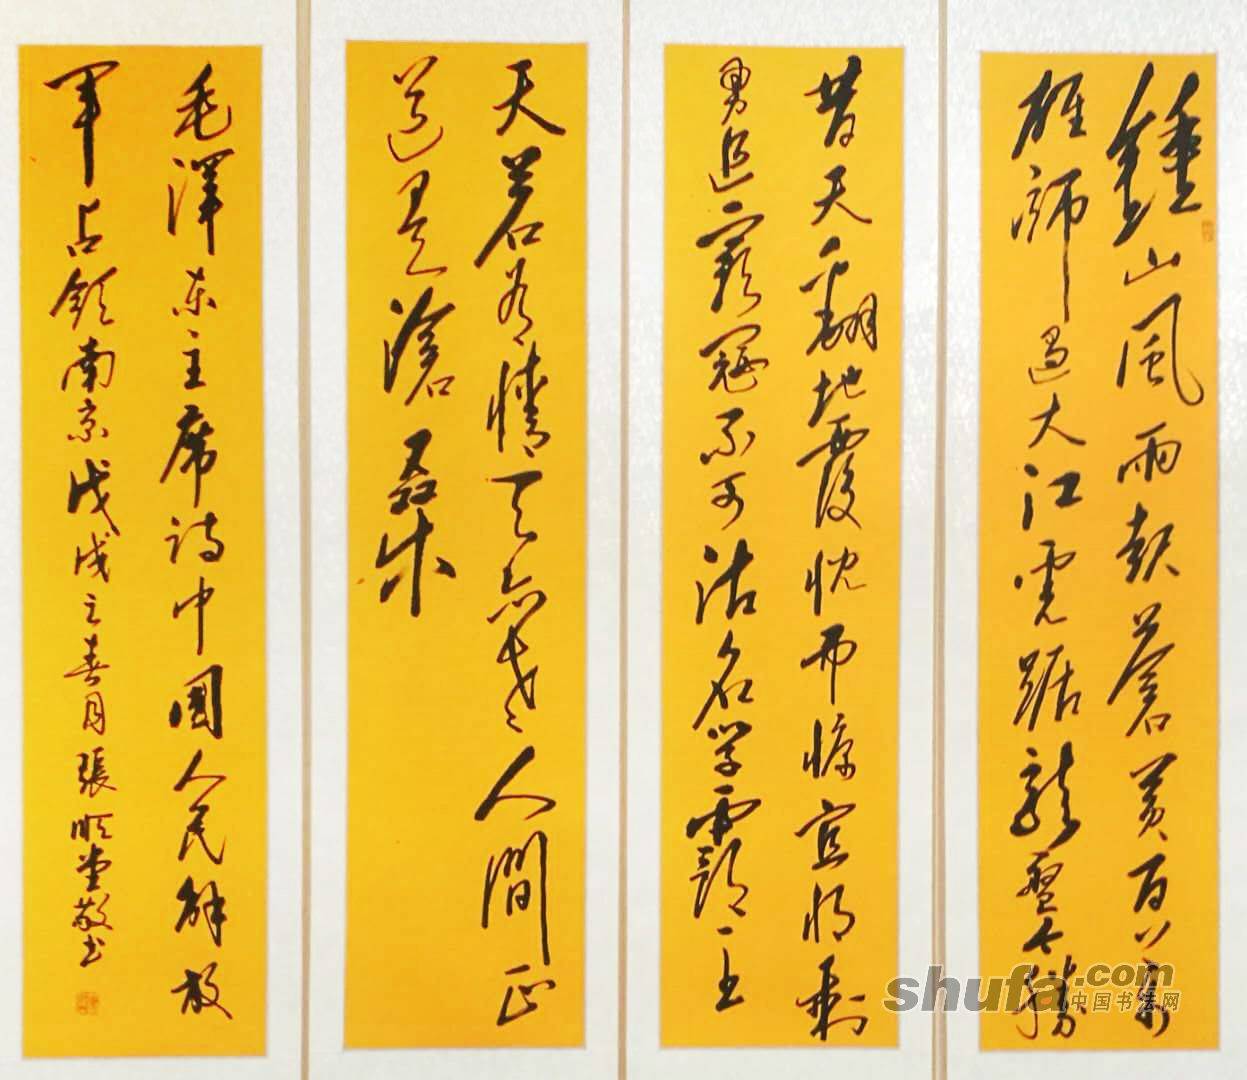 鍾山風雨起蒼黃百萬
雄師過大江虎踞龍盤今勝
昔天翻地覆慨而慷宜將剩
勇追窮寇不可沽名學霸王
天若有情天亦老人間正
道是滄桑
毛澤東主席詩中國人民解放
軍占領南京戊戌之春月張順堂敬書
shufa.com
中国书法网